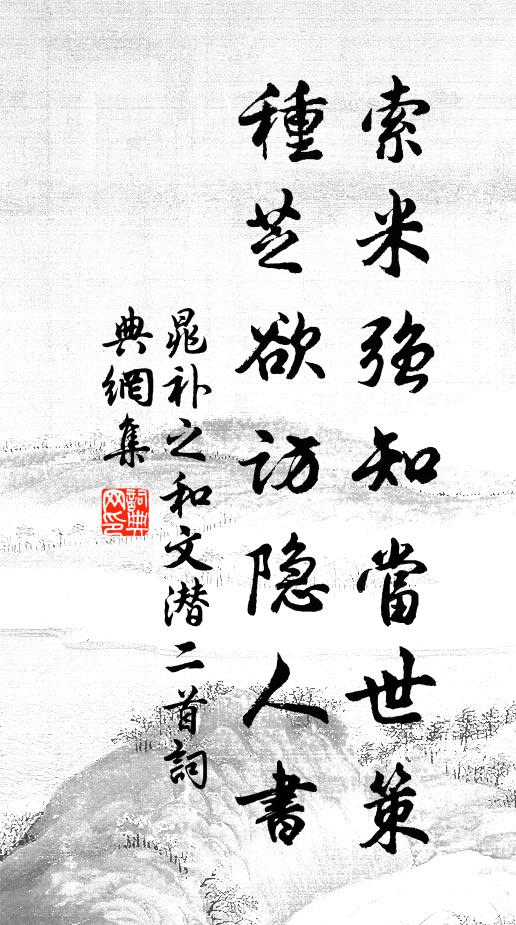 索米強知當世策
種芝欲访隐人書
晁补之和文潜二首詞
典網集
詞典网印